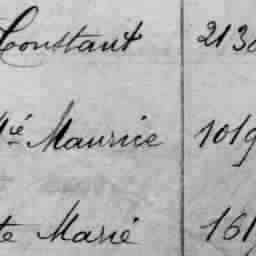 Constant 2130
Maurice 1019
te Marié 161